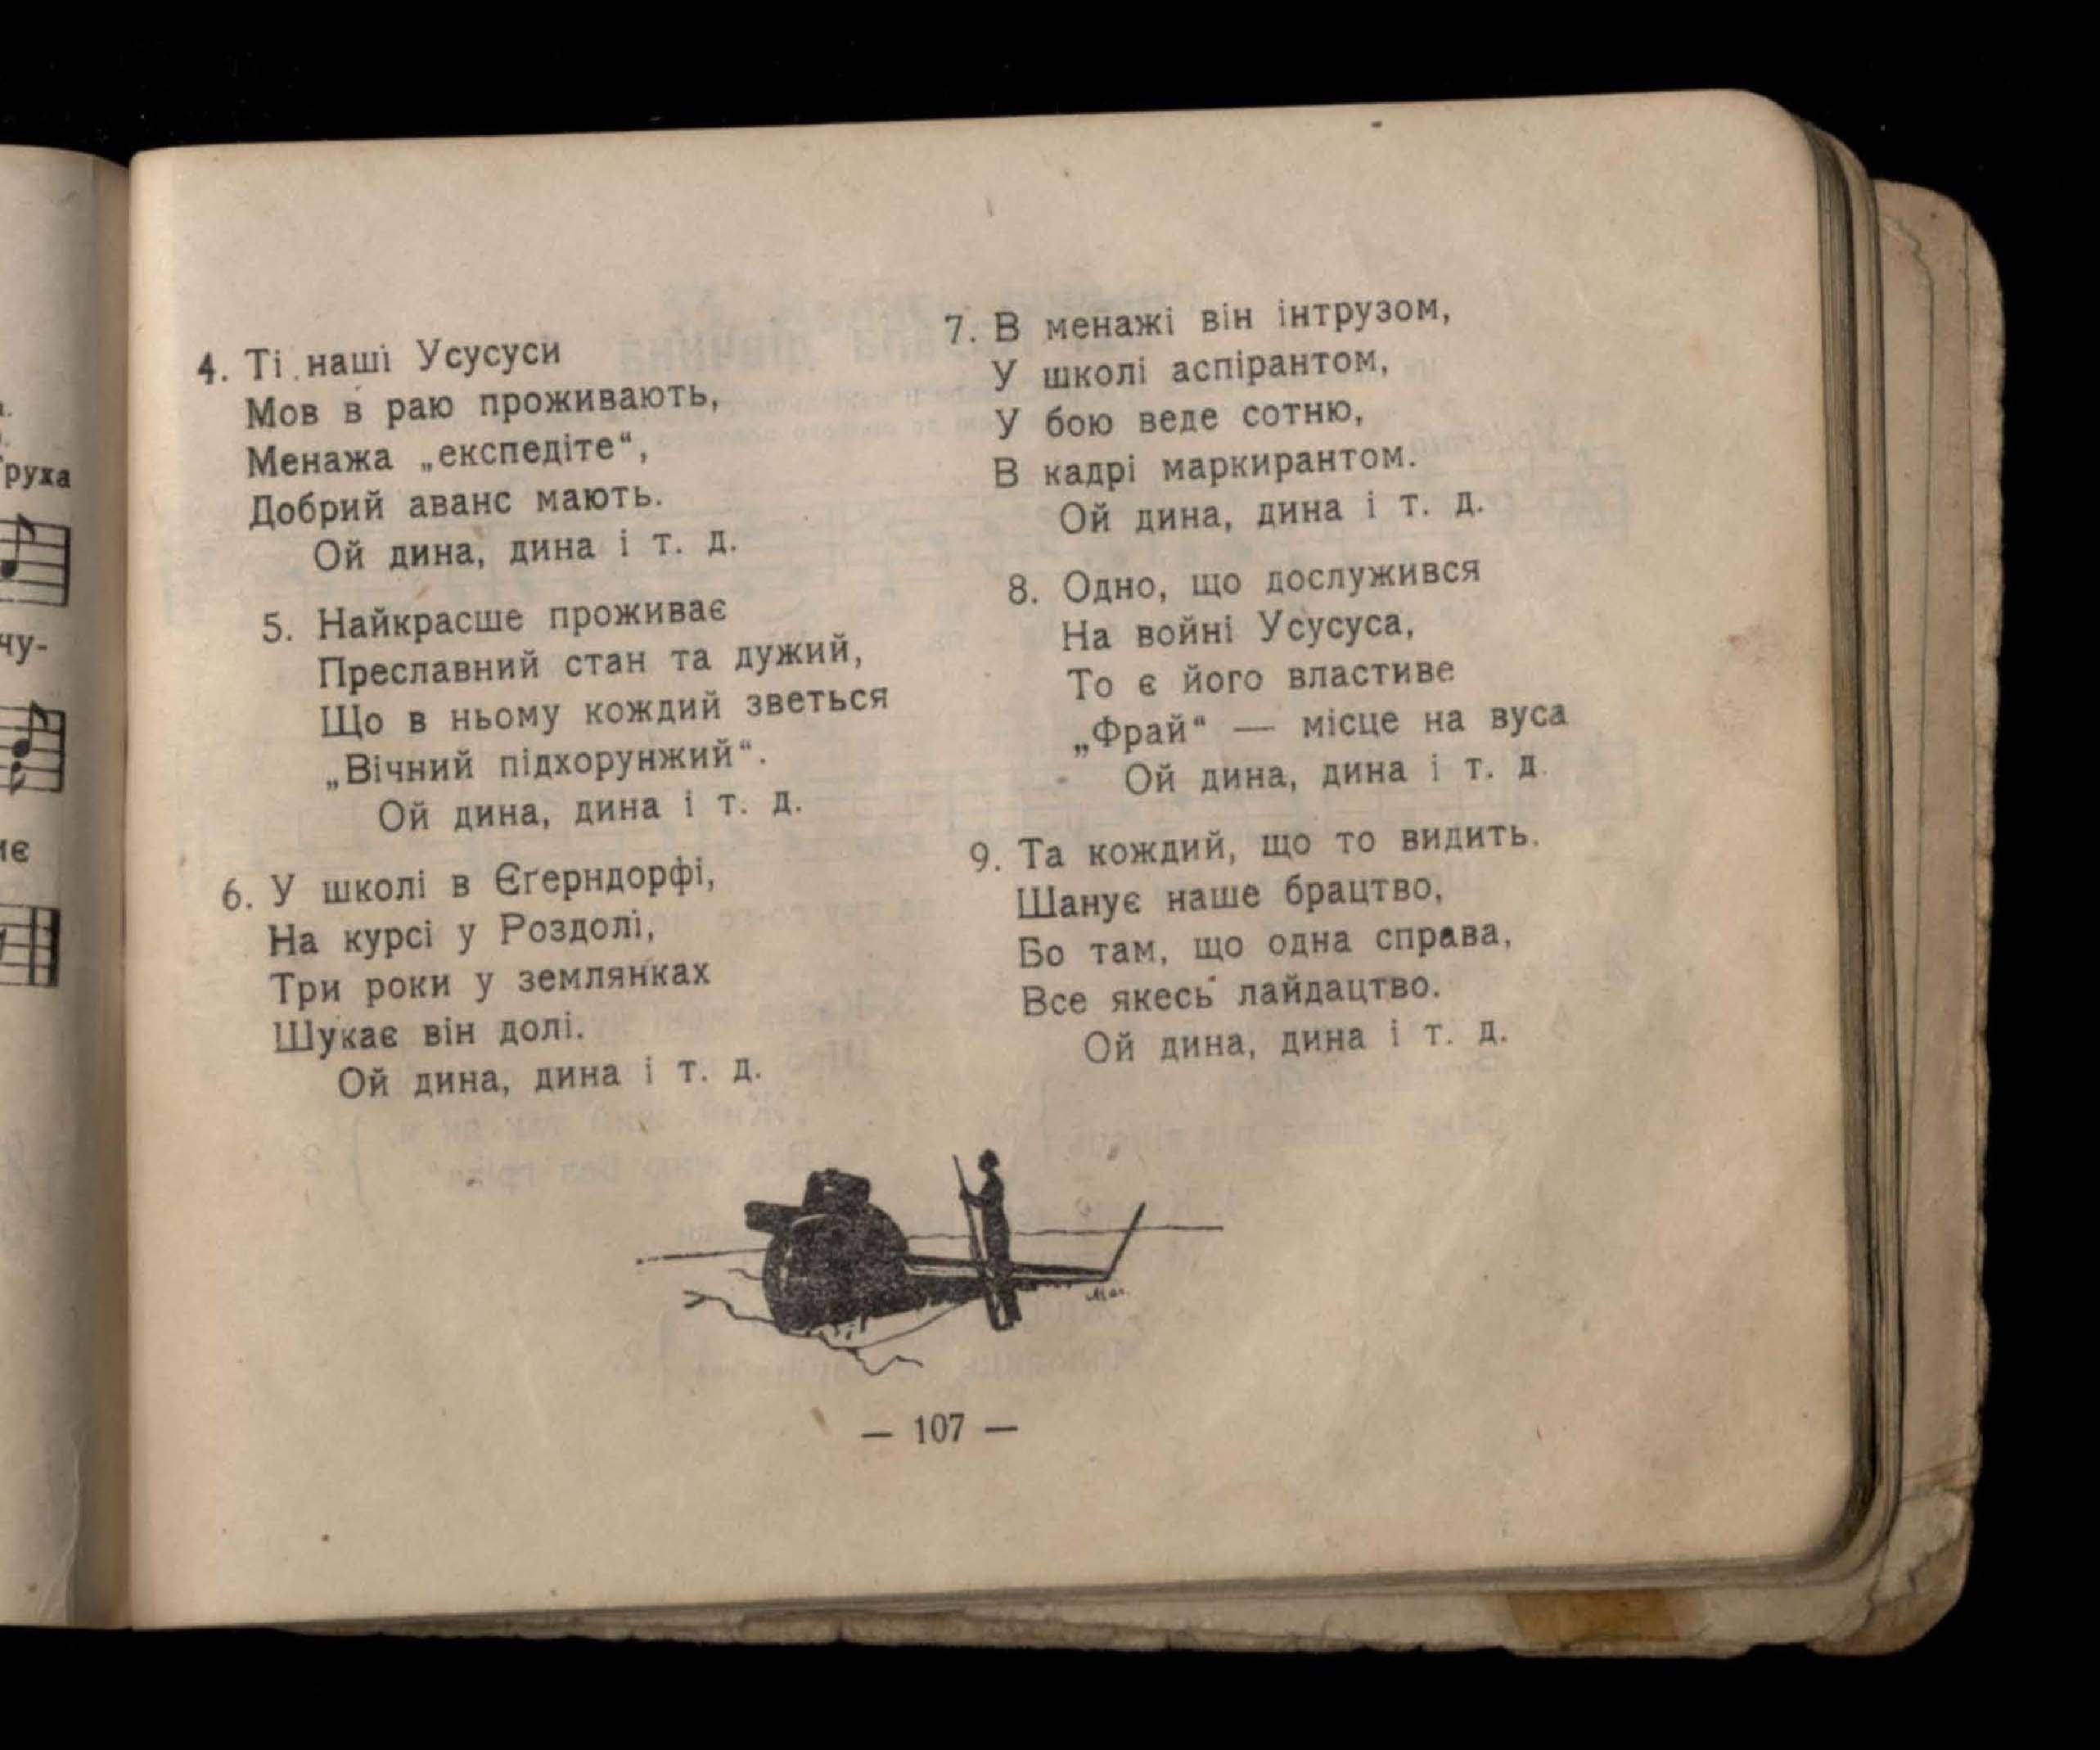 4. Ті наші Усусуси
Мов в раю проживають,
Менажа „експедіте“,
Добрий аванс мають.
Ой дина, дина і т. д.
5. Найкрасше проживає
Преславний стан та дужий,
Що в ньому кождий зветься
„Вічний підхорунжий“.
Ой дина, дина і т. д.
6. У школі в Єґерндорфі,
На курсі у Роздолі,
Три роки у землянках
Шукає він долі.
Ой дина, дина і т. д.
7. В менажі він інтрузом,
У школі аспірантом,
У бою веде сотню,
В кадрі маркирантом.
Ой дина, дина і т. д.
8. Одно, що дослужився
На войні Усусуса,
То є його властиве
„Фрай“ — місце на вуса
Ой дина, дина і т. д
9. Та кождий, що то видить.
Шанує наше брацтво,
Бо там, що одна справа,
Все якесь лайдацтво.
Ой дина, дина і т. д.
— 107 —